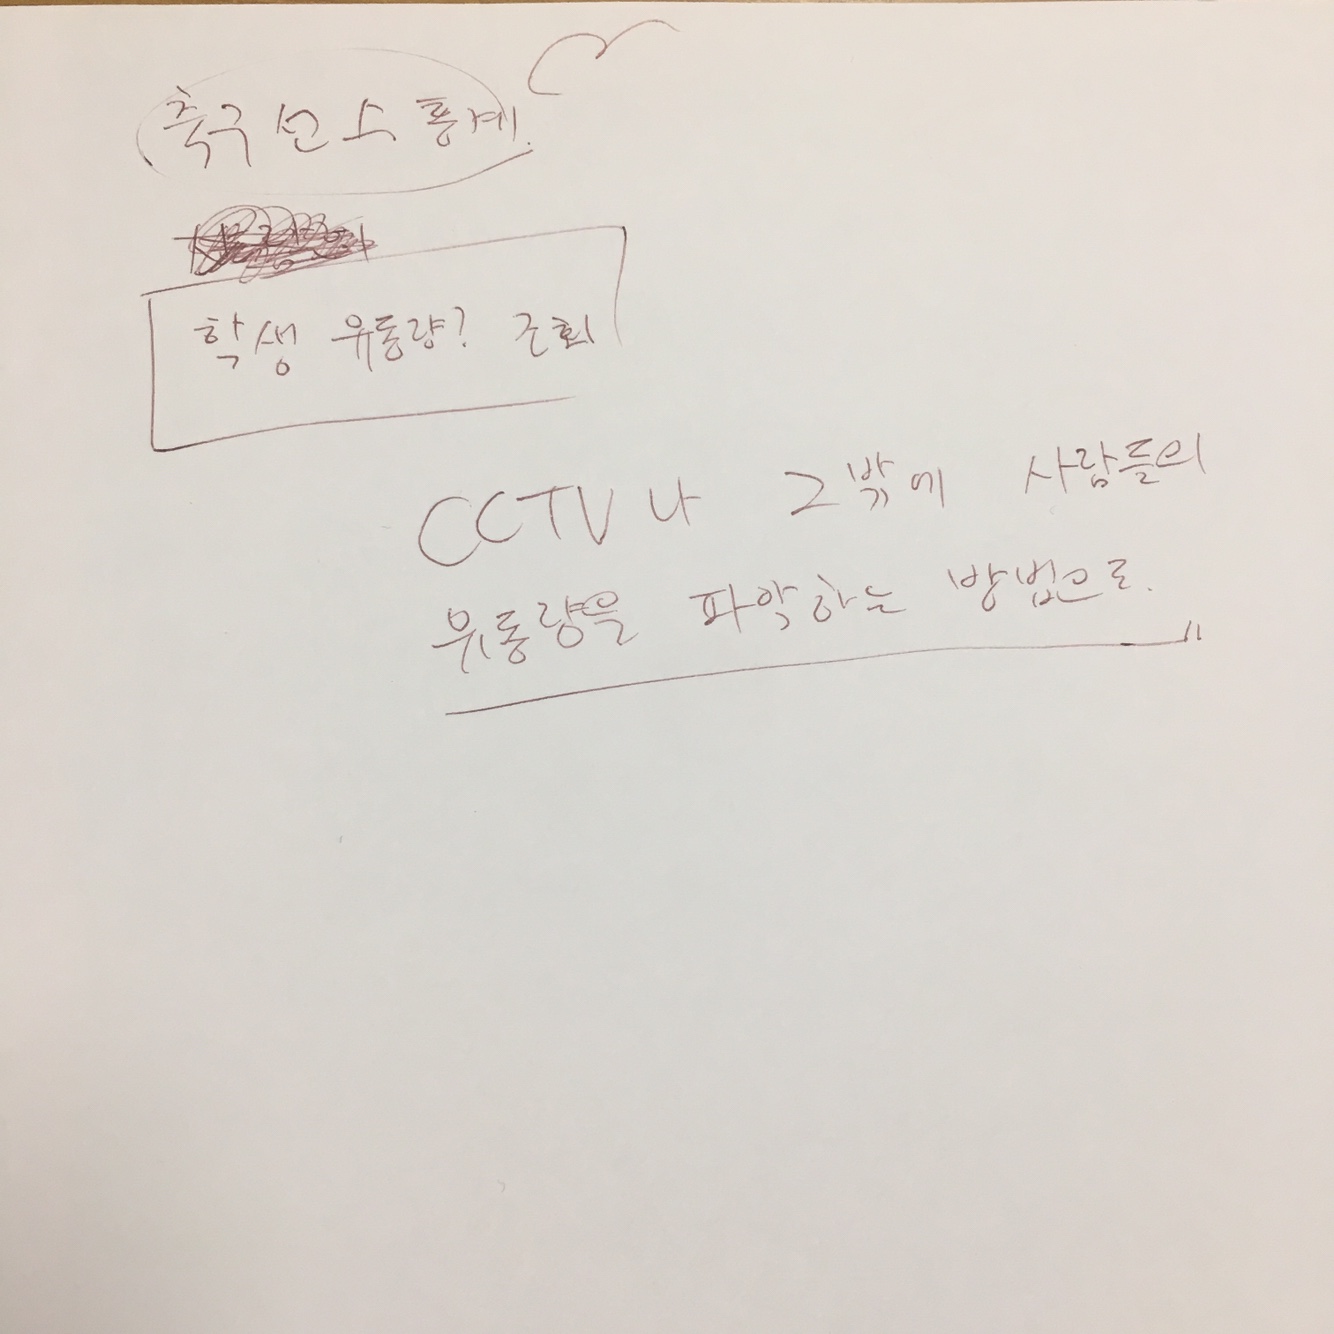 축구 선수 통계.
학생 유동량? 조회
CCTV나 그밖에 사람들의
유동량을 파악하는 방법으로.